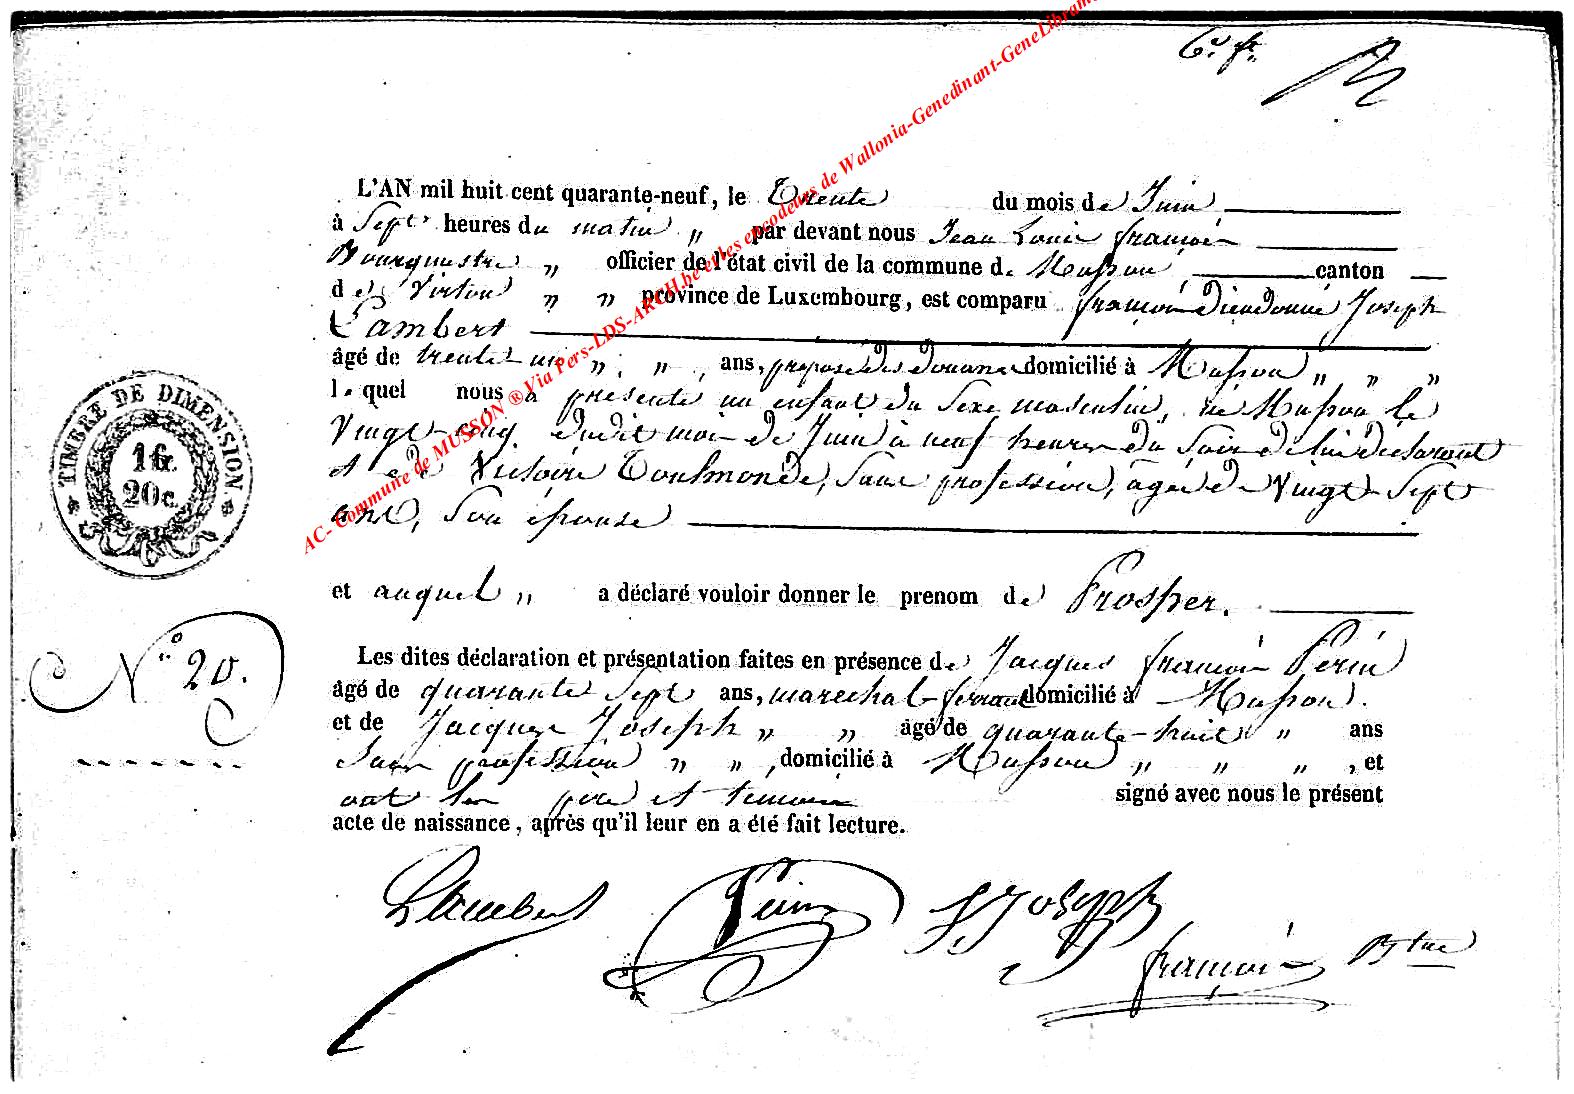 6e. fe.
L'AN mil huit cent quarante-neuf, le Trente du mois de Juin
à Sept heures du matin „ par devant nous Jean Louis françois
Bourgmestre „ officier de l'état civil de la commune de Musson canton
de Virton „ „ province de Luxembourg, est comparu françois Dieudonné Joseph
Lambert
âgé de trente un „ „ ans, préposé des douanes domicilié à Musson „ „ „
lequel nous a présenté un enfant du Sexe masculin, né Musson le
Vingt-cinq dudit mois de Juin à neuf heures du Soir de lui déclarant
et de Victoire Toulmonde, Sans profession, âgée de Vingt-Sept
ans, Son épouse
et auquel „ a déclaré vouloir donner le prenom de Prosper.
Les dites déclaration et présentation faites en présence de Jacques françois Perin
âgé de quarante Sept ans, marechal-ferrant domicilié à Musson.
et de Jacques Joseph „ „ âgé de quarante-huit „ ans
Sans profession „ „, domicilié à Musson „ „ „, et
ont les père et temoins signé avec nous le présent
acte de naissance, après qu'il leur en a été fait lecture.
TIMBRE DE DIMENSION
1 fr.
20 c.
No 20.
Lambert Perin J. Joseph
françois Bgtre
AC- Commune de MUSSON ® Via Pers-LDS-ARCH.be et les encodeurs de Wallonia-Genedinant-GeneLibram